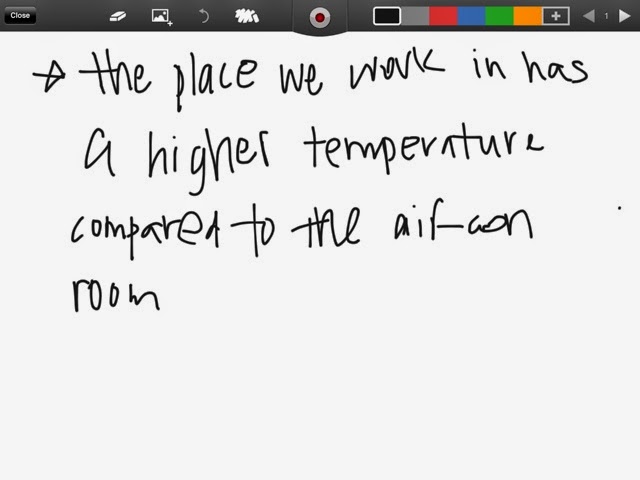 Close
1
→ the place we work in has
a higher temperature
compared to the air-con
room